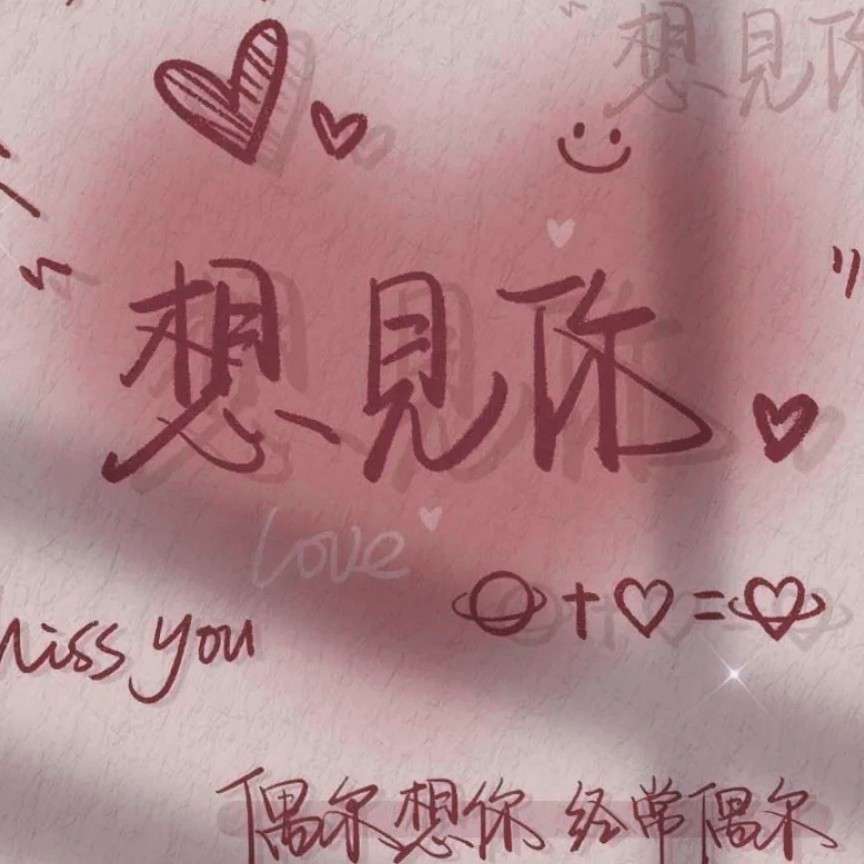 "想見你
"想見你"
Love
miss you
+ =
偶尔想你 经常偶尔